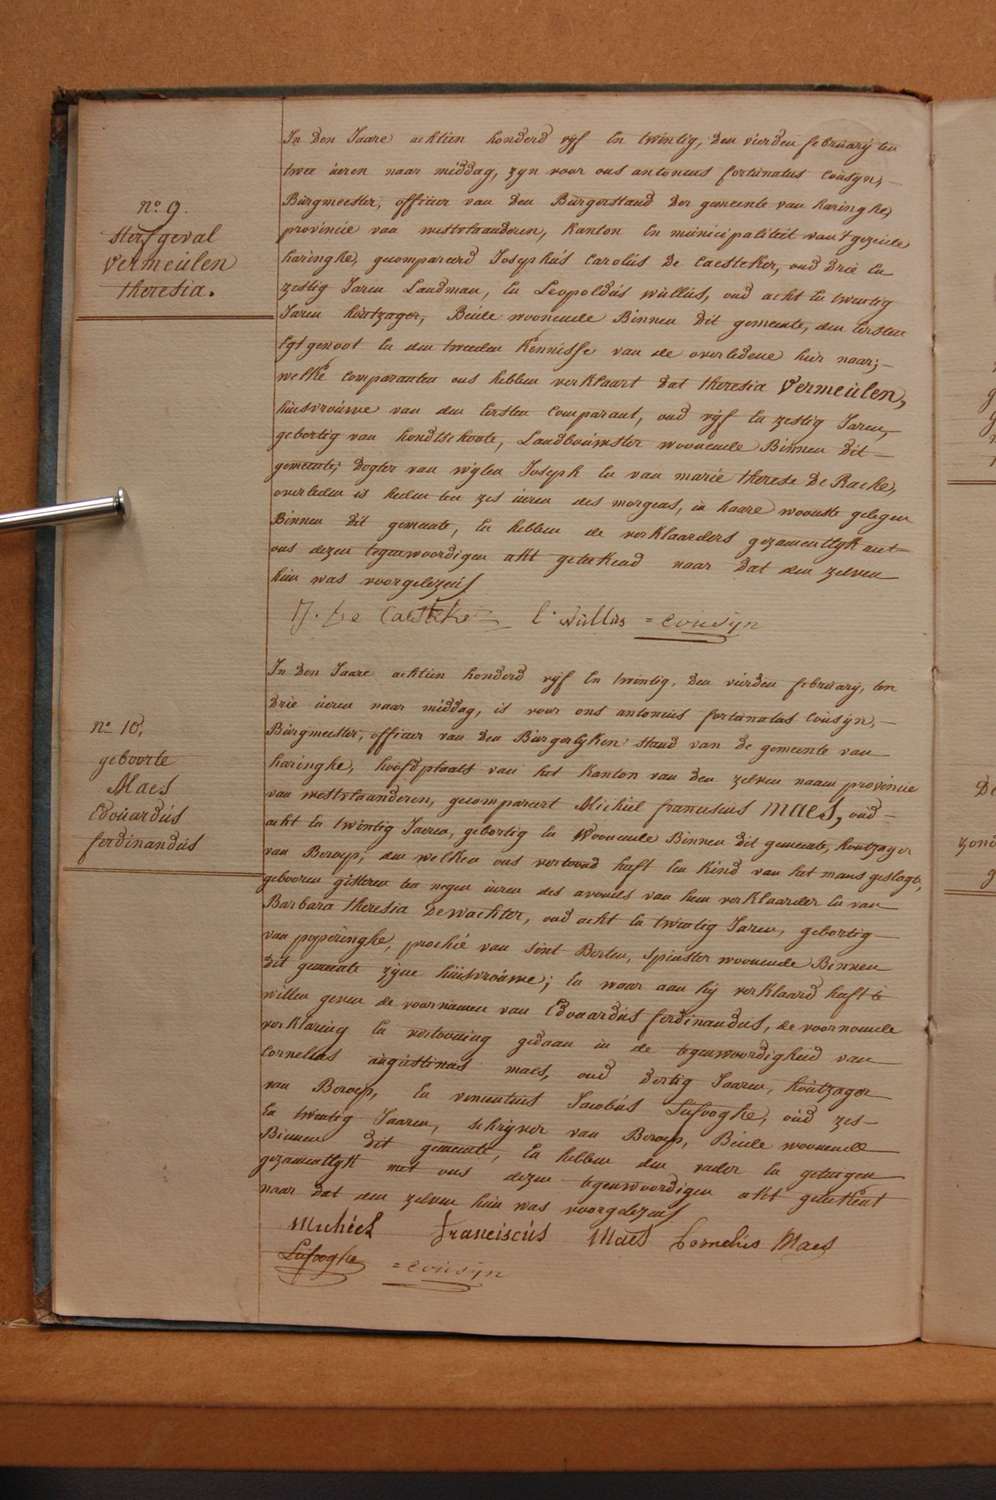 n.o 9.
sterfgeval
Vermeulen
theresia.
In Den Jaare achtien honderd vijf En twintig, Den vierden februarij ten
twee ùeren naar middag, zyn voor ons antonius fortùnatus Coùsyn,
Bùrgmeester, officier van Den Bùrgerstand Der gemeente van haringhe,
provincie van westvlaanderen, kanton En mùnicipaliteit van 't gezeide
haringhe, gecompareerd Josephùs Carolùs De Caesteker, oud drie En
zestig Jaren Landman, En Leopoldùs wùllùs, oud acht En twintig
Jaren hoùtzager, Beide woonende Binnen Dit gemeente, den Eersten
Egtgenoot En den tweeden kennisse van de overledene hier naar,
welke Comparanten ons hebben verklaart dat theresia Vermeùlen,
hùisvroùwe van den Eersten Comparant, oud vijf En zestig Jaren,
geboortig van hondtschoote, Landboùwster woonende Binnen Dit
gemeente, Dogter van wijlen Joseph En van marie therese De Racke,
overleden is heden ten zes ùeren des morgens, in haare woonste gelegen
Binnen Dit gemeente, En hebben de verklaarders gezamentlyk met
ons dezen tegenwoordigen akt geteekend naar Dat den zelven
hùn was voorgelezen
J. De Caesteker L. Wùllùs = Coùsijn
n.o 10.
geboorte
Maes
Edoùardùs
ferdinandùs
In Den Jaare achtien honderd vijf En twintig, Den vierden februarij, ten
Drie ùeren naar middag, is voor ons antonius fortùnatus Coùsijn,
Bùrgmeester, officier van Den Bùrgerlyken stand van De gemeente van
haringhe, hoofdplaats van het Kanton van den zelven naam provincie
van westvlaanderen, gecompareert Michiel franciscus Maes, oud
acht En twintig Jaren, geboortig En Woonende Binnen Dit gemeente, hoùtzager
van Beroep, den welken ons vertoond heeft Een kind van het mans geslagt,
geboren gisteren ten negen ùeren des avonds van hem verklaarder En van
Barbara theresia Dewachter, oud acht En twintig Jaren, geboortig
van poperinghe, prochie van sint Berten, spinster woonende Binnen
Dit gemeente zyne hùisvroùwe; En waar aan hy verklaard heeft te
willen geven de voornamen van Edoùardùs ferdinandùs, de voornoemde
verklaring En vertooning gedaan in de tegenwoordigheid van
Cornelius aùgùstinus maes, oud dertig Jaaren, hoùtzager
van Beroep, En vincentius Jacobùs Lùfooghe, oùd zes
En twintig Jaaren, schrijver van Beroep, Beide woonende
Binnen Dit gemeente, En hebben den vader En getuigen
gezamentlyk met ons dezen tegenwoordigen akt geteekent
naar dat den zelven hùn was voorgelezen
Michiel franciscùs Maes Cornelùs Maes
Lùfooghe = Coùsijn